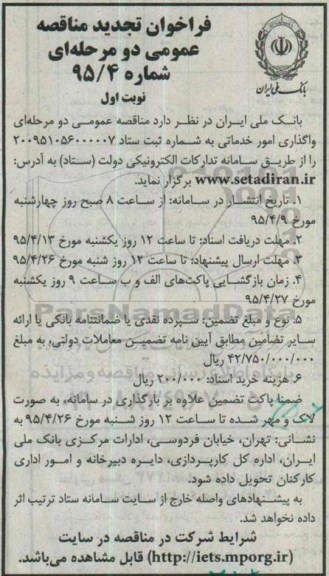 فراخوان تجدید مناقصه
عمومی دو مرحله‌ای
شماره ۹۵/۴
نوبت اول
بانک ملی ایران
بانک ملی ایران در نظر دارد مناقصه عمومی دو مرحله‌ای
واگذاری امور خدماتی به شماره ثبت ستاد ۲۰۰۹۵۱۰۵۶۰۰۰۰۰۷
را از طریق سامانه تدارکات الکترونیکی دولت (ستاد) به آدرس:
www.setadiran.ir برگزار نماید.
۱. تاریخ انتشار در سامانه: از ساعت ۸ صبح روز چهارشنبه
مورخ ۹۵/۴/۹
۲. مهلت دریافت اسناد: تا ساعت ۱۲ روز یکشنبه مورخ ۹۵/۴/۱۳
۳. مهلت ارسال پیشنهاد: تا ساعت ۱۲ روز شنبه مورخ ۹۵/۴/۲۶
۴. زمان بازگشایی پاکت‌های الف و ب ساعت ۹ روز یکشنبه
مورخ ۹۵/۴/۲۷
۵. نوع و مبلغ تضمین: سپرده نقدی یا ضمانتنامه بانکی یا ارائه
سایر تضامین مطابق آیین نامه تضمین معاملات دولتی، به مبلغ
۴۲/۷۵۰/۰۰۰/۰۰۰ ریال
۶. هزینه خرید اسناد: ۲۰۰/۰۰۰ ریال
ضمنا پاکت تضمین علاوه بر بارگذاری در سامانه، به صورت
لاک و مهر شده تا ساعت ۱۲ روز شنبه مورخ ۹۵/۴/۲۶ به
نشانی: تهران، خیابان فردوسی، ادارات مرکزی بانک ملی
ایران، اداره کل کارپردازی، دایره دبیرخانه و امور اداری
کارکنان تحویل داده شود.
به پیشنهادهای واصله خارج از سایت سامانه ستاد ترتیب اثر
داده نخواهد شد.
شرایط شرکت در مناقصه در سایت
(http://iets.mporg.ir) قابل مشاهده می‌باشد.